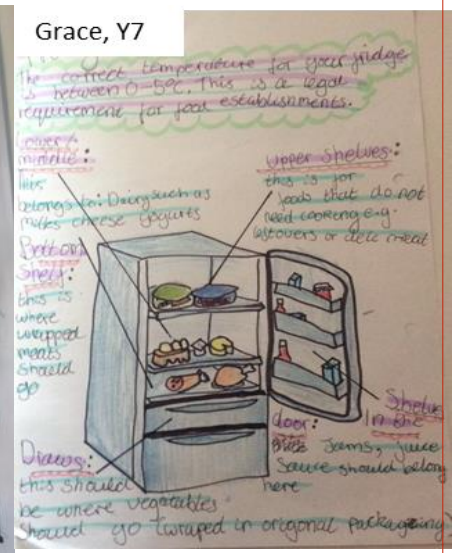 Grace, Y7
The correct temperature for your fridge
is between 0-5°c. This is a legal
requirement for food establishments.
Lower &
middle:
this
belongs to: Dairy such as
milks cheese yogurts
Upper shelves:
this is for
foods that do not
need cooking e.g.
leftovers or deli meat
Bottom
Shelf:
this is
where
wrapped
meats
should
go
Shelves
In the
door:
Jams, juice
Sauce should belong
here
Draws:
this should
be where vegatables
should go (wraped in origonal packageing)